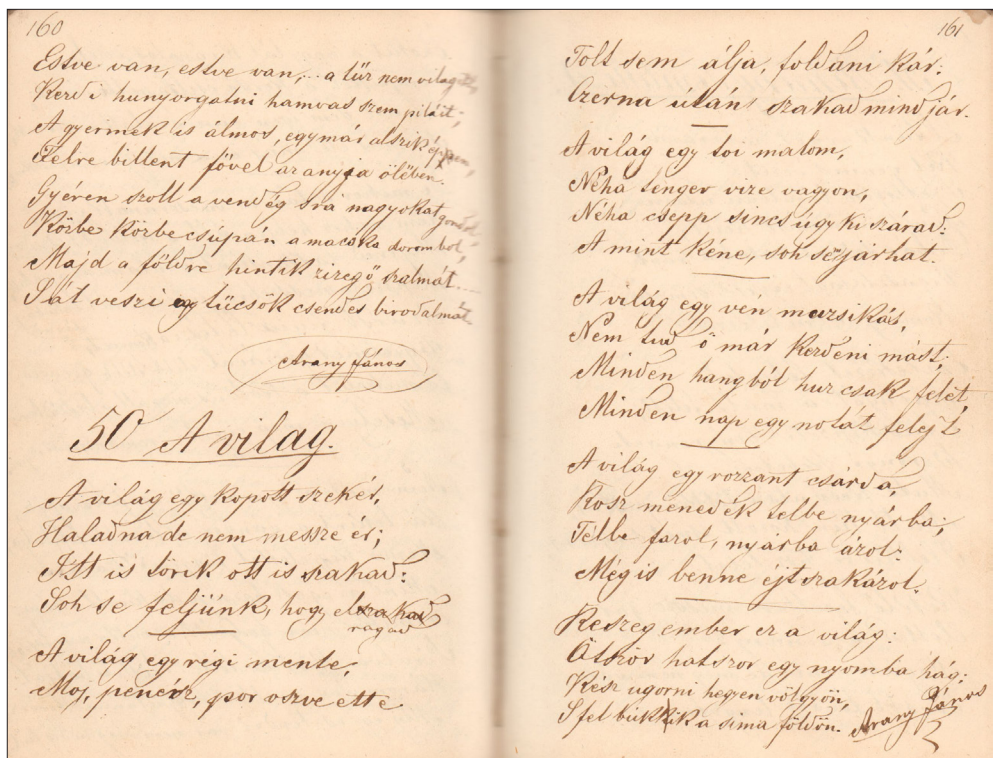 160
Estve van, estve van,... a tűz nem világit,
Kezdi hunyorgatni hamvad szem piláit;
A gyermek is álmos, egymár alszik éppen,
Félre billent fővel az anyja ölében.
Gyéren szoll a vendég s rá nagyokat gondol,
Körbe Körbe csúpán a macska dorombol,
Majd a földre hintik zizegő szalmát....
S át veszi egy tücsök csendes birodalmát
Arany János
50 A vilag.
A világ egy kopott szekér,
Haladna de nem messze ér;
Itt is törik ott is szakad:
Soh se feljünk, hogy elszakad
ragad
A világ egy régi mente,
Moj, penész, por oszve ette
161
Tolt sem álja, foldani kár:
Czerna útáns szakad mindjár.
A világ egy toi malom,
Néha tenger vize vagyon,
Néha csepp sincs úgy ki szárad:
A mint kéne, soh se járhat.
A világ egy vén muzsikás,
Nem tud ő már kezdéni mást;
Minden hangból hur csak felét,
Minden nap egy notát felejt
A világ egy rozzant csárda,
Rosz menedék telbe nyárba;
Télbe fazol, nyárba ázol:
Mégis benne éjtszakázol.
Reszeg ember ez a világ:
Ötször hatszor egy nyomba hág;
Kész ugorni hegyen völgyön,
S fel bukkik a sima földön.
Arany János